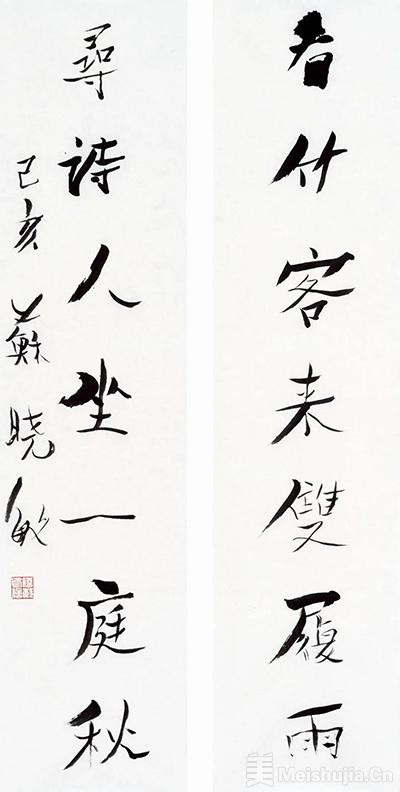 看竹客来雙履雨
尋詩人坐一庭秋
己亥 蘇曉敏
美 Meishujia.Cn